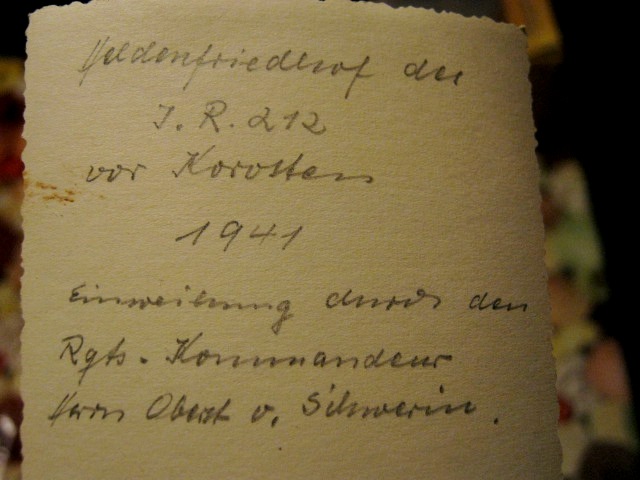 Heldenfriedhof des
I. R. 212
vor Korosten
1941
Einweihung durch den
Rgts. Kommandeur
Herrn Oberst v. Schwerin.